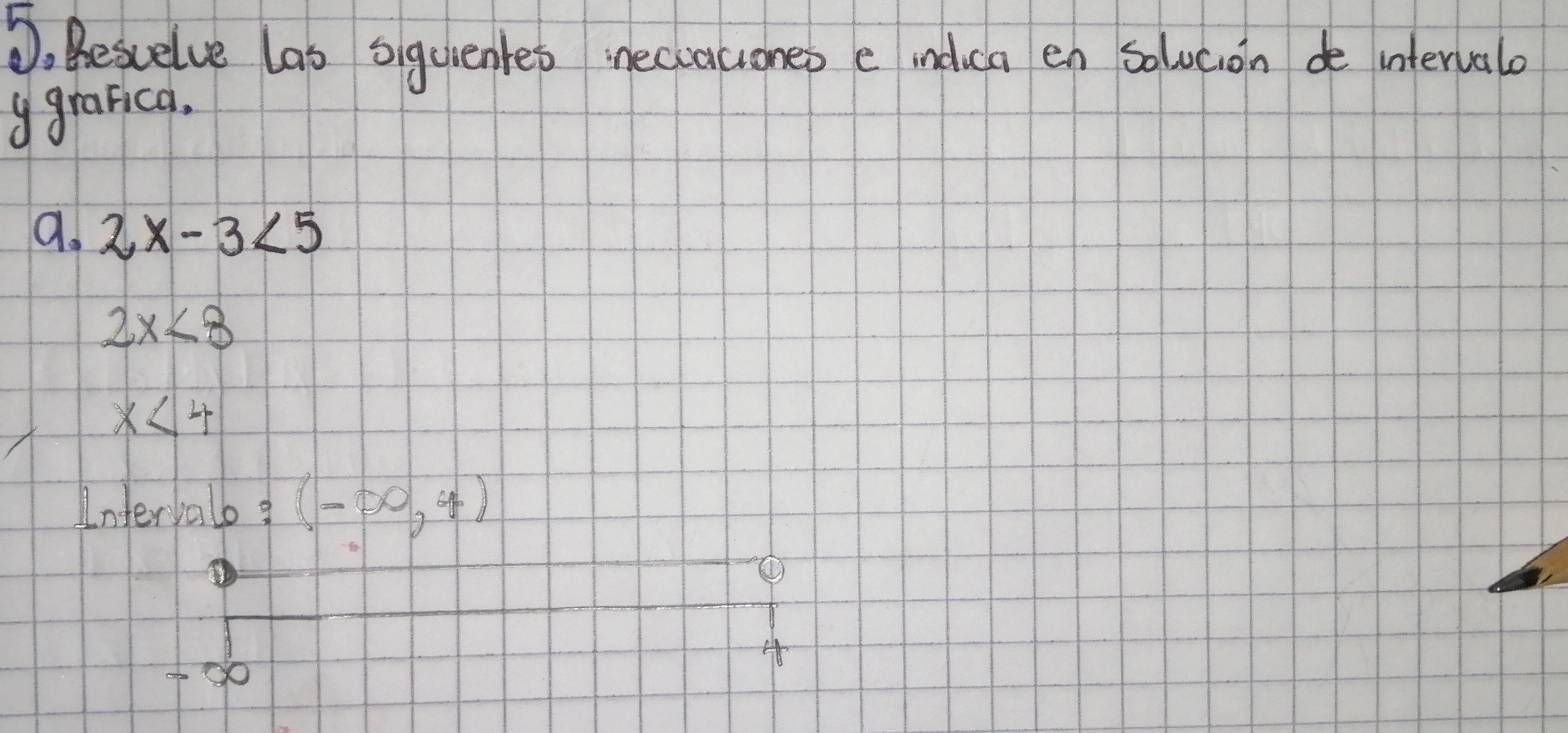 5. Resuelve las siguientes inecuaciones e indica en solución de intervalo
y grafica.
a. 2x - 3 < 5
2x < 8
x < 4
Intervalo: (-∞, 4)
-∞ 4